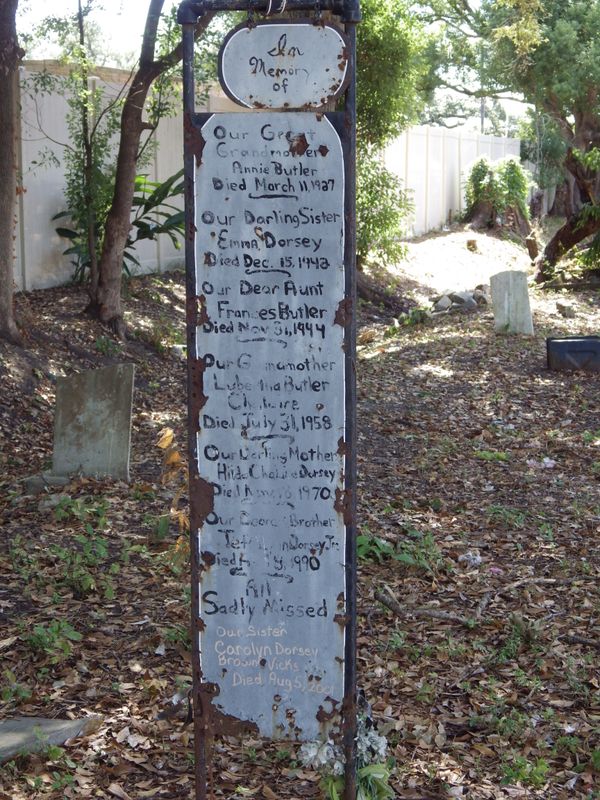 In
Memory
of
Our Great
Grandmother
Annie Butler
Died March 11, 1927
Our Darling Sister
Emma Dorsey
Died Dec. 15, 1942
Our Dear Aunt
Frances Butler
Died Nov 31, 1944
Our Grandmother
Butler
Died July 31, 1958
Our Darling Mother
Hilda Dorsey
Died 1970
Our Brother
Dorsey, Jr.
Died 1990
All
Sadly Missed
Our Sister
Carolyn Dorsey
Brown Vicks
Died Aug 5, 2001